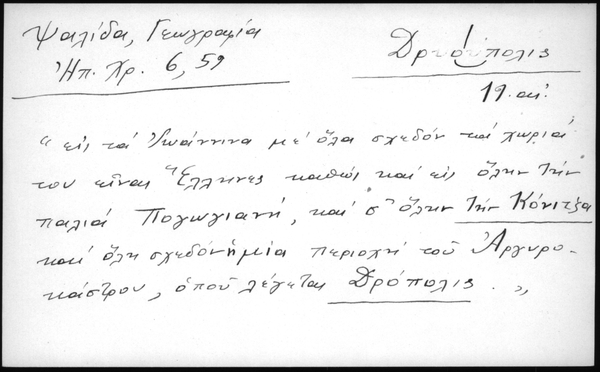 Ψαλίδα, Γεωγραφία
Ἠπ. Χρ. 6, 59
Δρυούπολις
19. αἰ.
“ εἰς τά Ἰωάννινα μέ ὅλα σχεδόν τά χωριά
του εἶναι Ἕλληνες καθώς καί εἰς ὅλην τήν
παλιά Πογωγιανή, καί σ' ὅλην τήν Κόνιτζα
καί ὅλη σχεδόν ἡ μία περιοχή τοῦ Ἀργυρο-
κάστρου, ὁποῦ λέγεται Δρόπολις . „